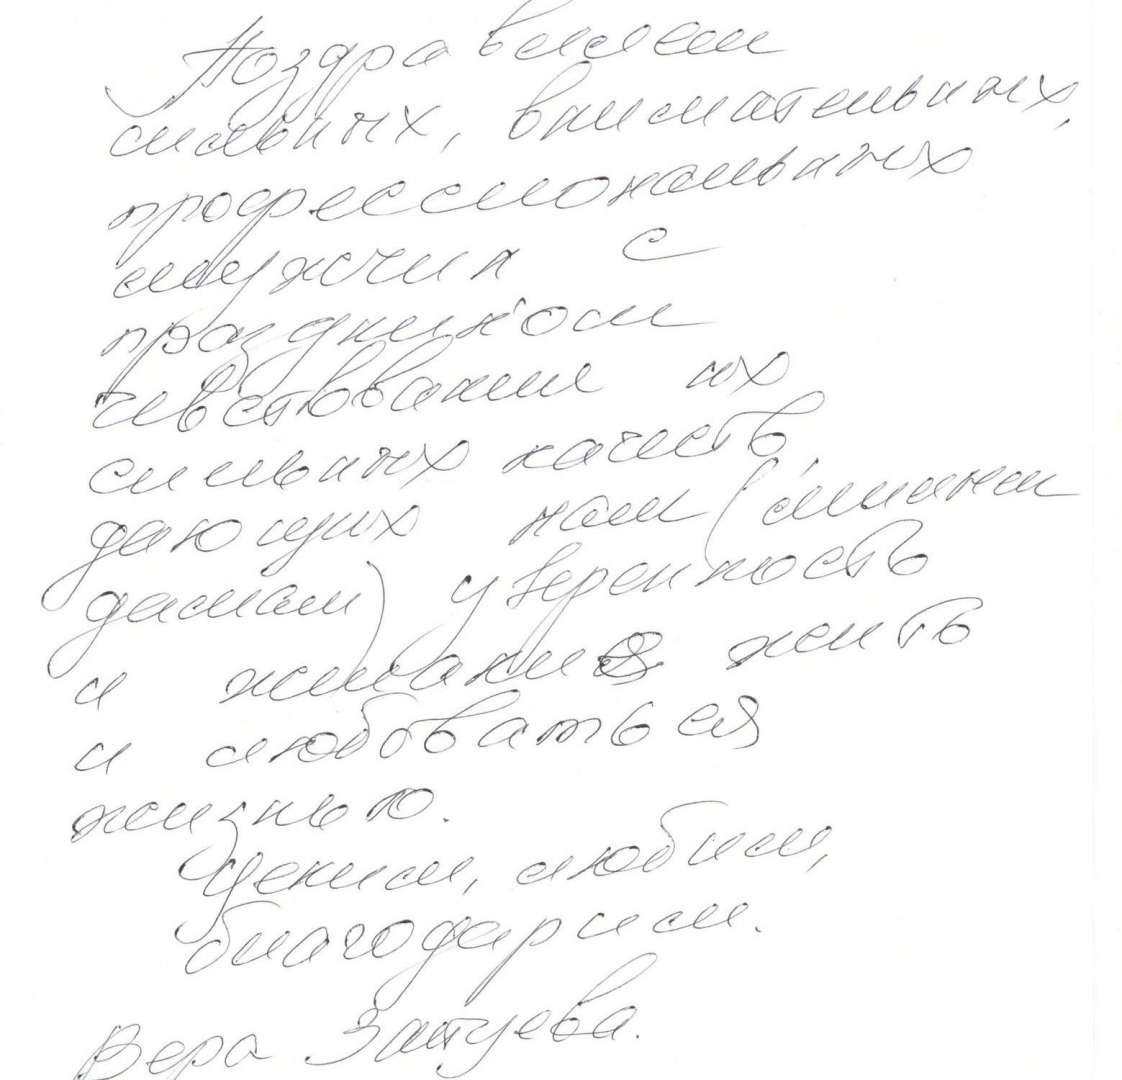 Поздравляем
сильных, внимательных,
профессиональных
мужчин с
праздником
чествования их
сильных качеств,
дающих нам (милым
дамам) уверенность
и желание жить
и любоваться
жизнью.
Ценим, любим,
благодарим.
Вера